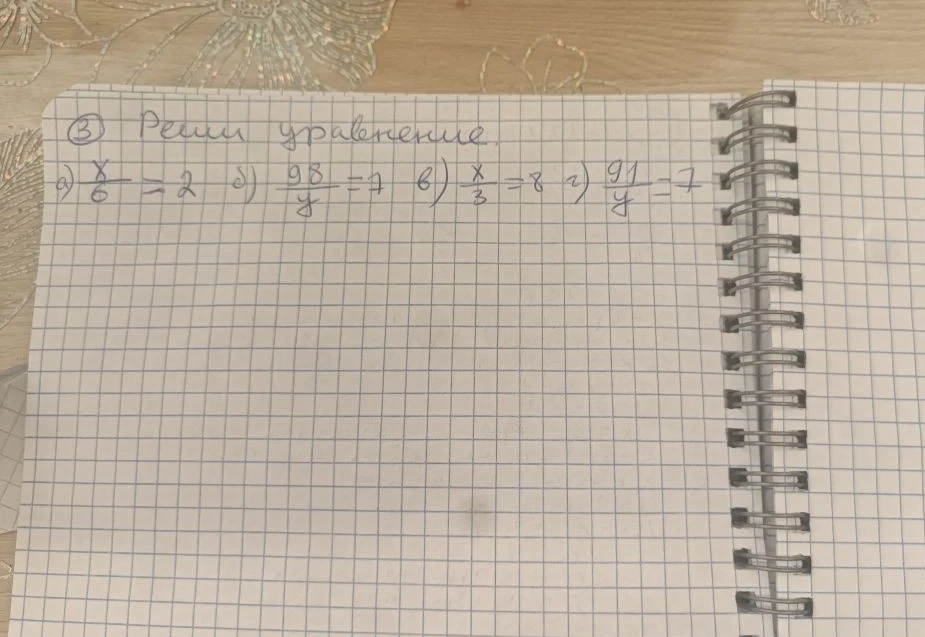 ③ Реши уравнение.
а) x/6 = 2 б) 98/y = 7 в) x/3 = 8 г) 91/y = 7